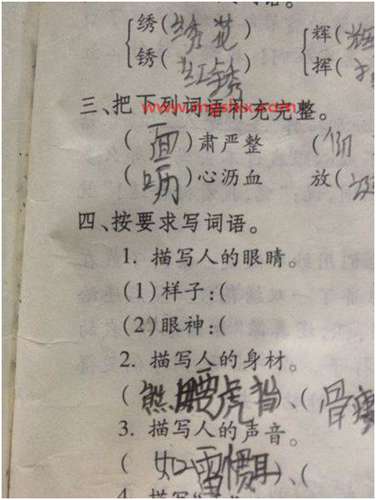 绣(绣花) 辉(辉
锈(红锈) 挥(
三、把下列词语补充完整。
(面)肃严整 (
(呖)心沥血 放(
四、按要求写词语。
1. 描写人的眼睛。
(1)样子:(
(2)眼神:(
2. 描写人的身材。
(熊腰虎背)、(骨瘦
3. 描写人的声音。
(如雷惯耳)、(
4. 描写